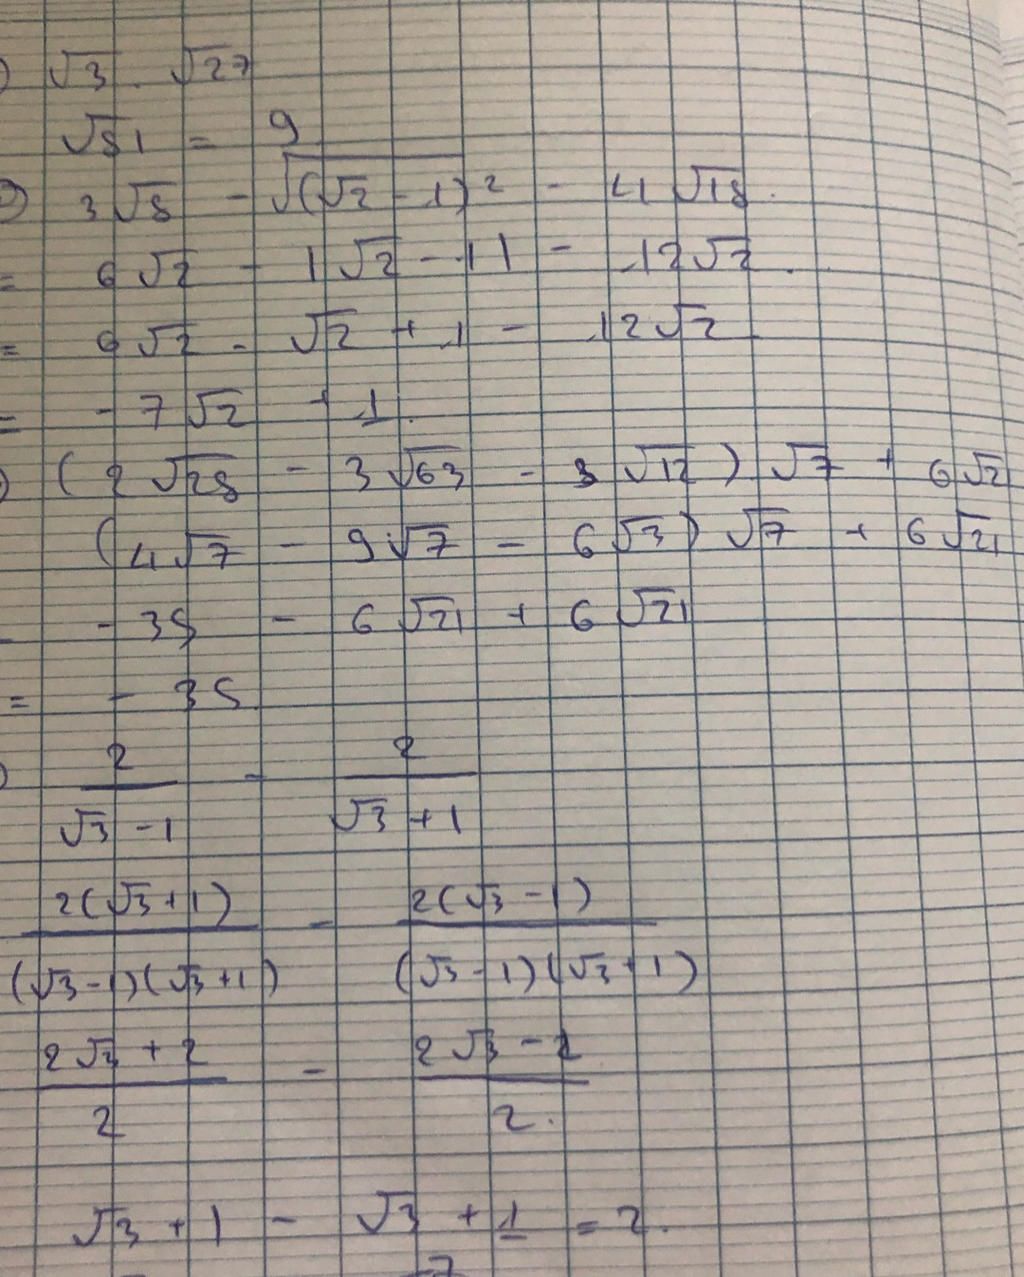 ) √3 . √27
√81 = 9
) 3√8 - √(√2 - 1)² - 4√18.
= 6√2 - |√2 - 1| - 12√2.
= 6√2 - √2 + 1 - 12√2
= -7√2 + 1.
) (2√28 - 3√63 - 3√12) √7 + 6√2
(4√7 - 9√7 - 6√3) √7 + 6√21
- -35 - 6√21 + 6√21
= -35
) 2/(√3 - 1) - 2/(√3 + 1)
2(√3 + 1)/((√3 - 1)(√3 + 1)) - 2(√3 - 1)/((√3 - 1)(√3 + 1))
(2√3 + 2)/2 - (2√3 - 2)/2.
√3 + 1 - √3 + 1 = 2.